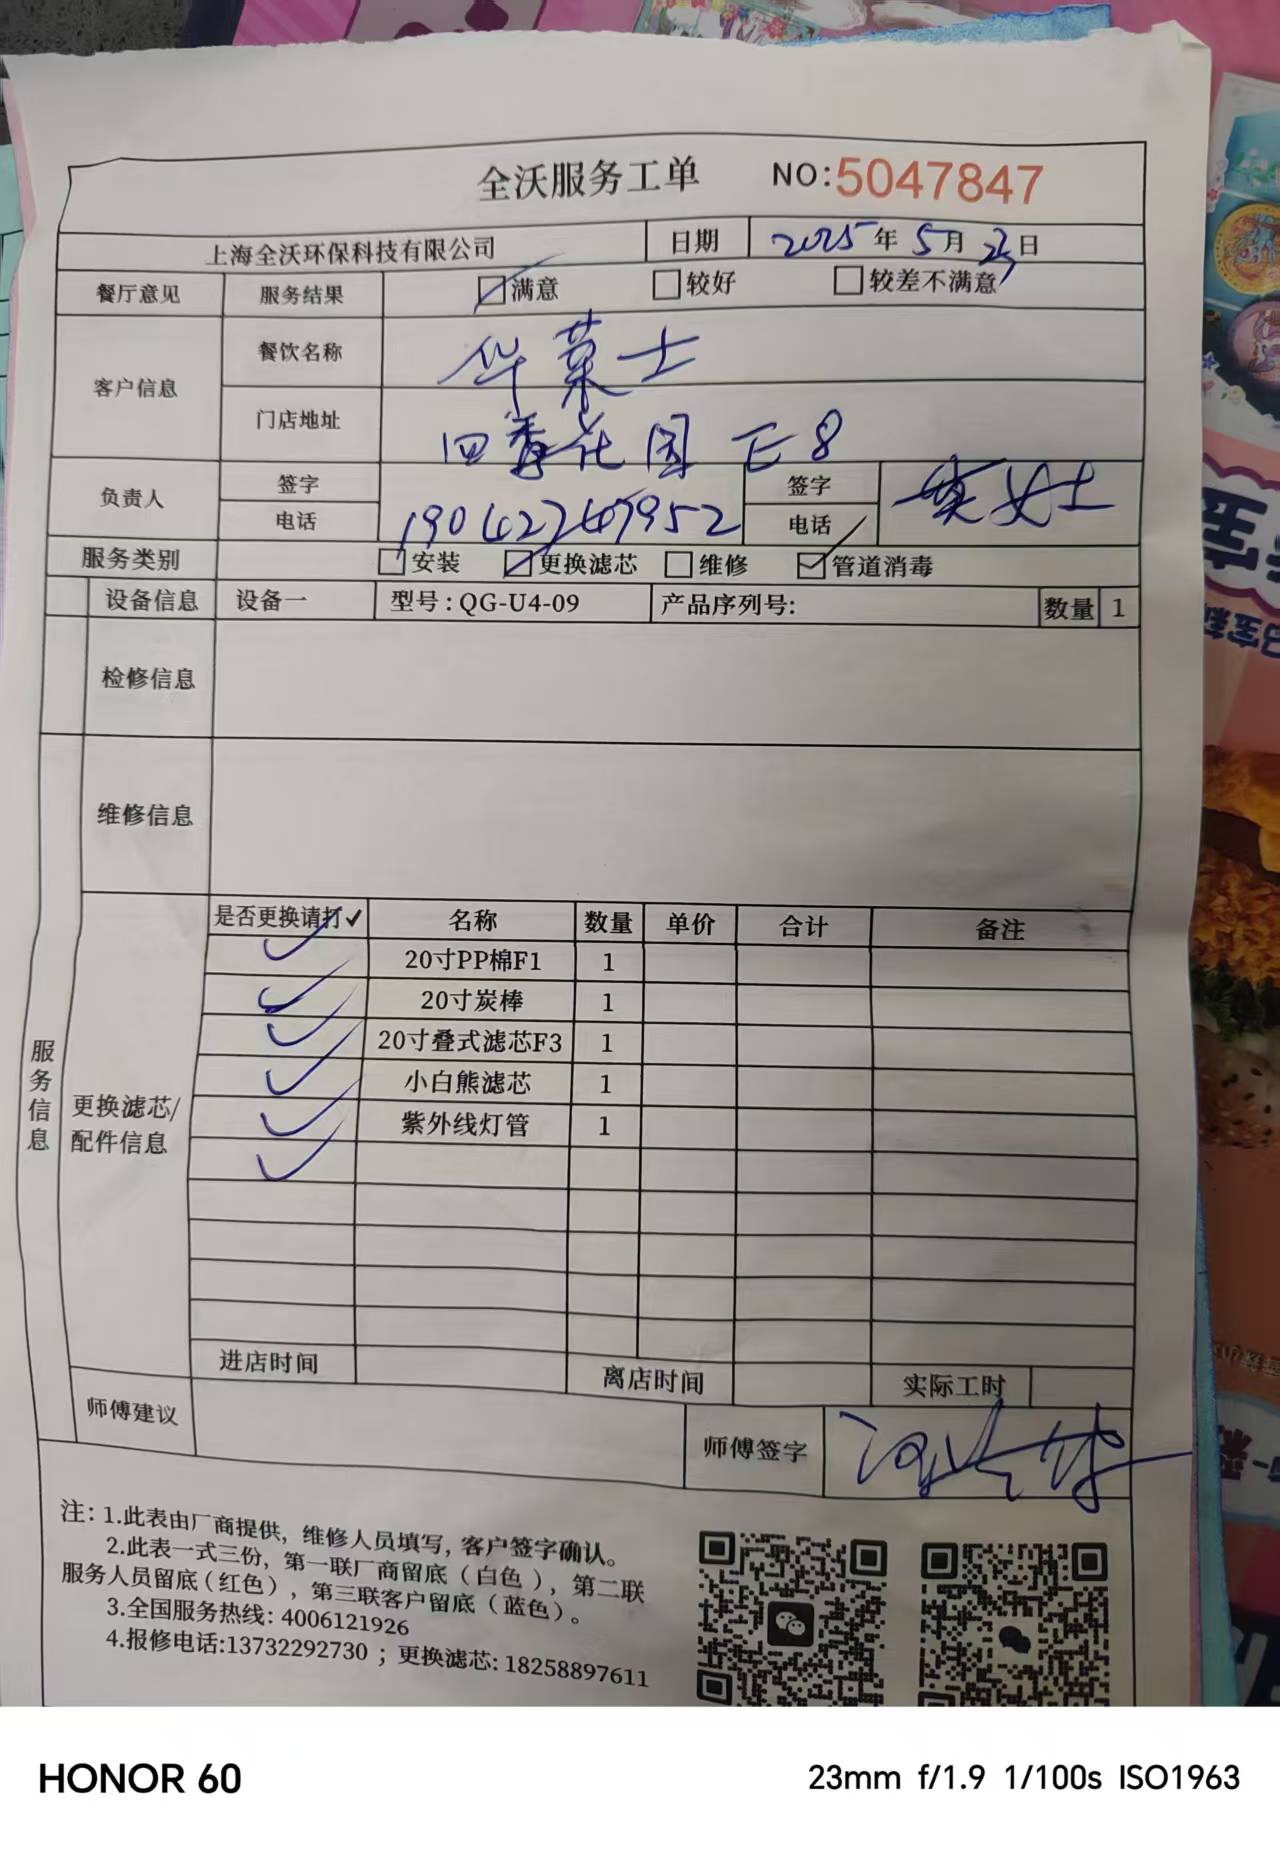 全沃服务工单 NO:5047847
上海全沃环保科技有限公司 日期 2025年5月 日
餐厅意见 服务结果 满意 较好 较差不满意
客户信息 餐饮名称 华莱士
门店地址 四季花园 E8
负责人 签字 签字 女士
电话 19042247952 电话
服务类别 安装 更换滤芯 维修 管道消毒
设备信息 设备一 型号:QG-U4-09 产品序列号: 数量 1
检修信息
维修信息
服务信息
更换滤芯/
配件信息
是否更换请打✓ 名称 数量 单价 合计 备注
✓ 20寸PP棉F1 1
✓ 20寸炭棒 1
✓ 20寸叠式滤芯F3 1
✓ 小白熊滤芯 1
✓ 紫外线灯管 1
✓
进店时间 离店时间 实际工时
师傅建议 师傅签字
注: 1.此表由厂商提供, 维修人员填写, 客户签字确认。
2.此表一式三份, 第一联厂商留底(白色), 第二联
服务人员留底(红色), 第三联客户留底(蓝色)。
3.全国服务热线: 4006121926
4.报修电话:13732292730 ; 更换滤芯: 18258897611
HONOR 60
23mm f/1.9 1/100s ISO1963